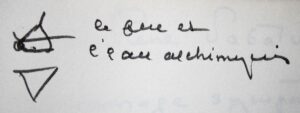 le feu et
l'eau alchimiques